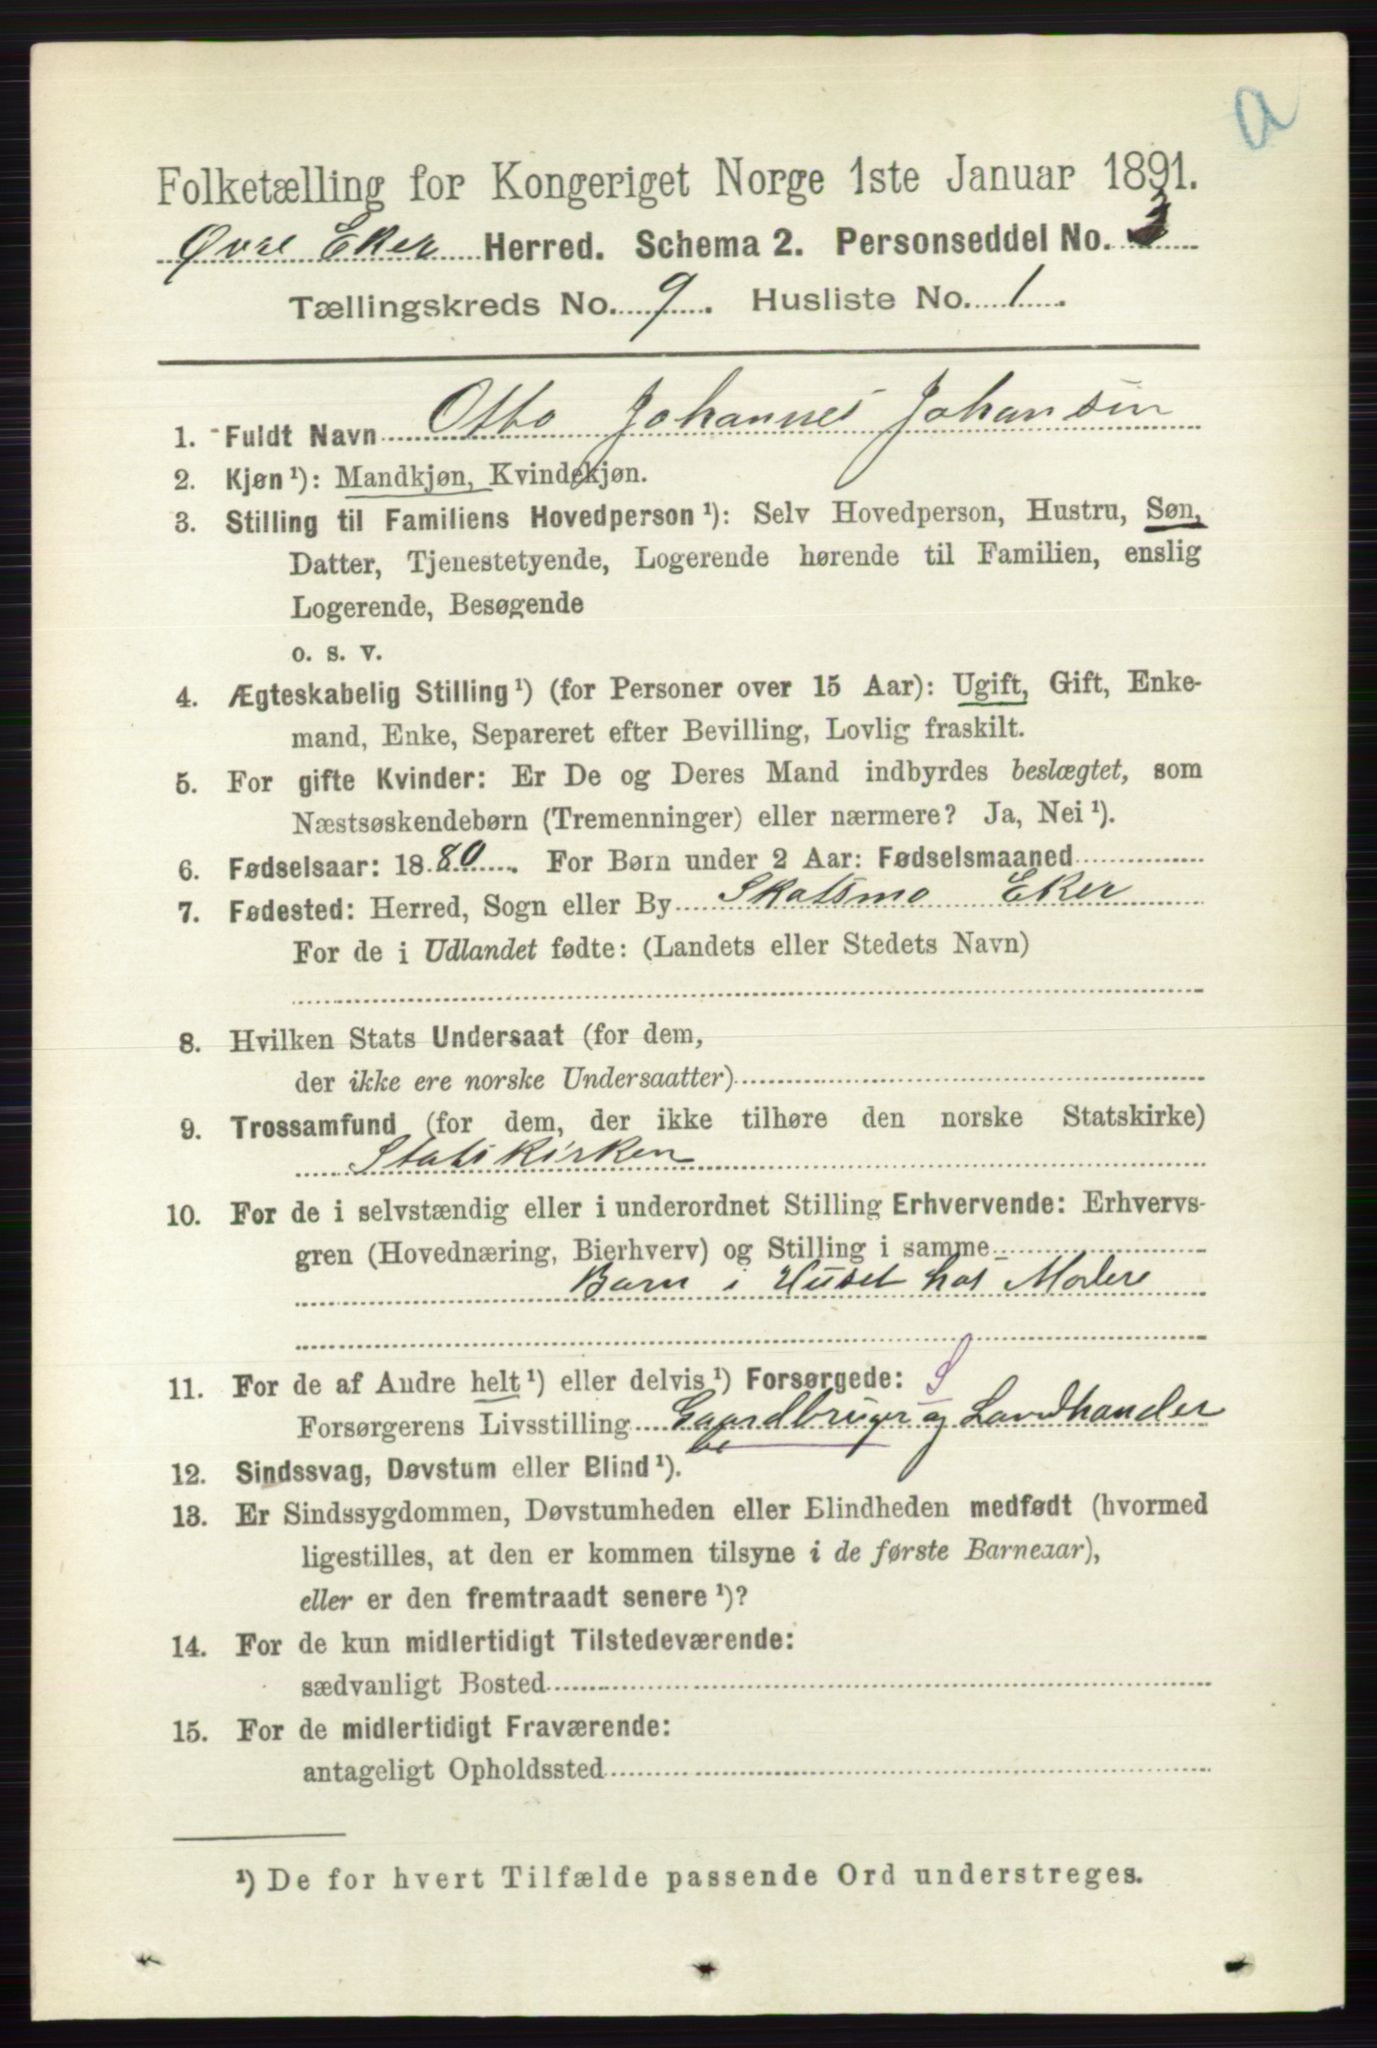 a
Folketælling for Kongeriget Norge 1ste Januar 1891.
Øvre Eker Herred. Schema 2. Personseddel No. 3
Tællingskreds No. 9. Husliste No. 1.
1. Fuldt Navn Otto Johannes Johansen
2. Kjøn ¹): Mandkjøn, Kvindekjøn.
3. Stilling til Familiens Hovedperson ¹): Selv Hovedperson, Hustru, Søn,
Datter, Tjenestetyende, Logerende hørende til Familien, enslig
Logerende, Besøgende
o. s. v.
4. Ægteskabelig Stilling ¹) (for Personer over 15 Aar): Ugift, Gift, Enke-
mand, Enke, Separeret efter Bevilling, Lovlig fraskilt.
5. For gifte Kvinder: Er De og Deres Mand indbyrdes beslægtet, som
Næstsøskendebørn (Tremenninger) eller nærmere? Ja, Nei ¹).
6. Fødselsaar: 1880. For Børn under 2 Aar: Fødselsmaaned
7. Fødested: Herred, Sogn eller By Skotsmo Eker
For de i Udlandet fødte: (Landets eller Stedets Navn)
8. Hvilken Stats Undersaat (for dem,
der ikke ere norske Undersaatter)
9. Trossamfund (for dem, der ikke tilhøre den norske Statskirke)
Statskirken
10. For de i selvstændig eller i underordnet Stilling Erhvervende: Erhvervs-
gren (Hovednæring, Bierhverv) og Stilling i samme
Barn i Huset hos
11. For de af Andre helt ¹) eller delvis ¹) Forsørgede: S
Forsørgerens Livsstilling Gaardbruger og Landhandler
12. Sindssvag, Døvstum eller Blind ¹).
13. Er Sindssygdommen, Døvstumheden eller Blindheden medfødt (hvormed
ligestilles, at den er kommen tilsyne i de første Barneaar),
eller er den fremtraadt senere ¹)?
14. For de kun midlertidigt Tilstedeværende:
sædvanligt Bosted
15. For de midlertidigt Fraværende:
antageligt Opholdssted
¹) De for hvert Tilfælde passende Ord understreges.